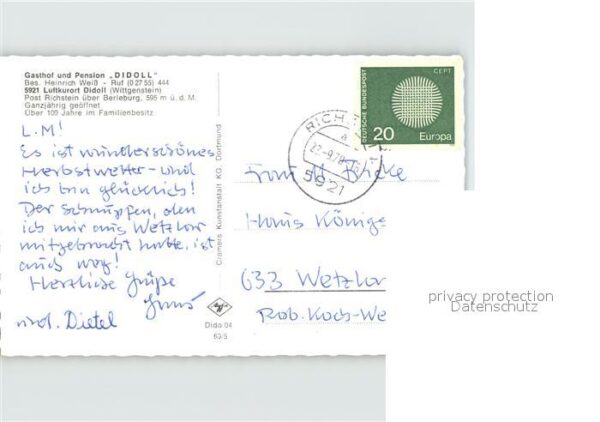 Gasthof und Pension „DIDOLL"
Bes. Heinrich Weiß - Ruf (0 27 55) 444
5921 Luftkurort Didoll (Wittgenstein)
Post Richstein über Berleburg, 595 m ü. d. M.
Ganzjährig geöffnet
Über 100 Jahre im Familienbesitz
L. M!
Es ist wunderschönes
Herbstwetter - und
ich bin glücklich!
Der Schnupfen, den
ich mir aus Wetzlar
mitgebracht hatte, ist
auch weg!
Herzliche Grüße
und. Dietel
Cramers Kunstanstalt KG, Dortmund
Dido 04
CEPT
DEUTSCHE BUNDESPOST
20
Europa
RICH
a
5921
Frau
Haus Königs
633 Wetzlar
Rob. Koch-We
privacy protection
Datenschutz